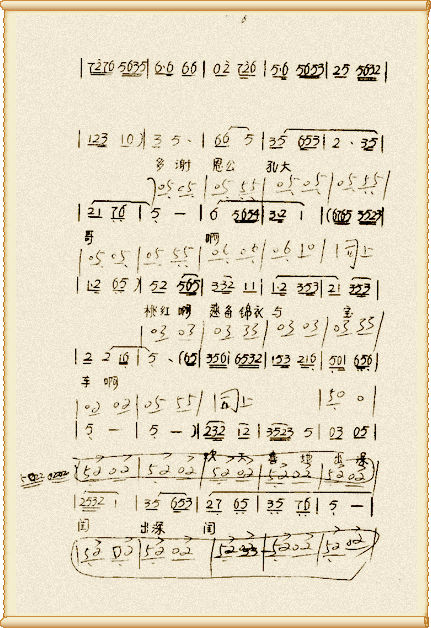 6
| 7276 5635 | 6·6 66 | 02 726 | 5·6 5653 | 25 5632 |
| 123 10 ) | 3 5 · | 66 5 | 35 653 | 2 · 35 |
多谢 恩公 孔大
) 05 05 | 05 55 | 05 05 | 05 55 |
| 21 76 | 5 — | 6 5654 | 32 1 | (6765 3523 |
哥 啊
| 05 05 | 05 55 | 06 06 | 06 10 | 同上
| 12 65 ) | 52 565 | 332 11 | 12 353 | 21 353 |
桃红啊 锦衣与 宝
| 03 03 | 03 33 | 03 03 | 03 33 |
| 2 2 16 | 5 · (65 | 356 6532 | 153 216 | 501 656 |
车啊
| 02 02 | 05 55 | 同上 | 50 0 |
| 5 — | 5 — ) | 232 12 | 3523 5 | 03 05 |
喜地 出深
| 52 02 | 52 02 | 52 02 | 52 02 | 52 02 |
| 2532 1 | 35 653 | 27 65 | 35 76 | 5 — |
闺 出深 闺
| 52 02 | 52 02 | 52 | 52 02 | 52 02 |